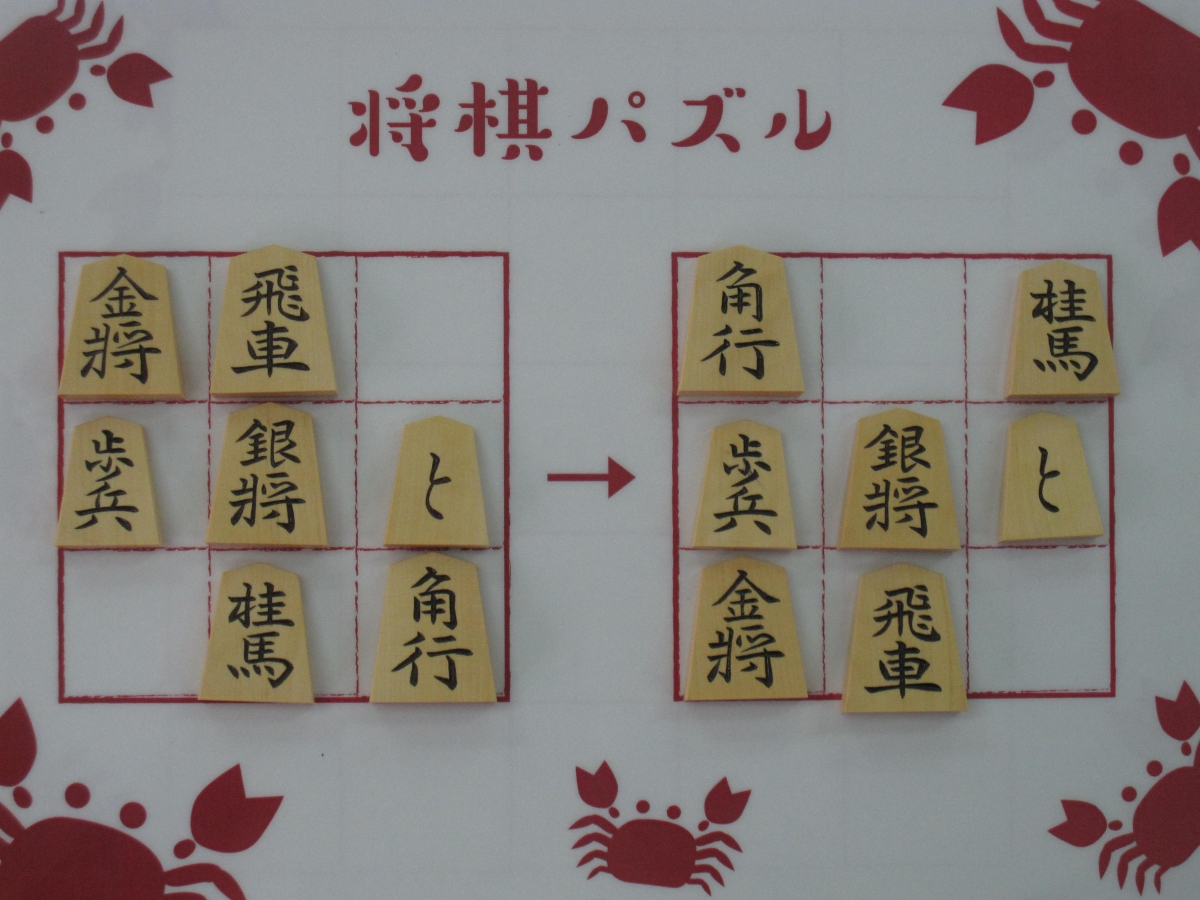 将棋パズル
金将 飛車 角行 桂馬
歩兵 銀将 と 歩兵 銀将 と
桂馬 角行 金将 飛車